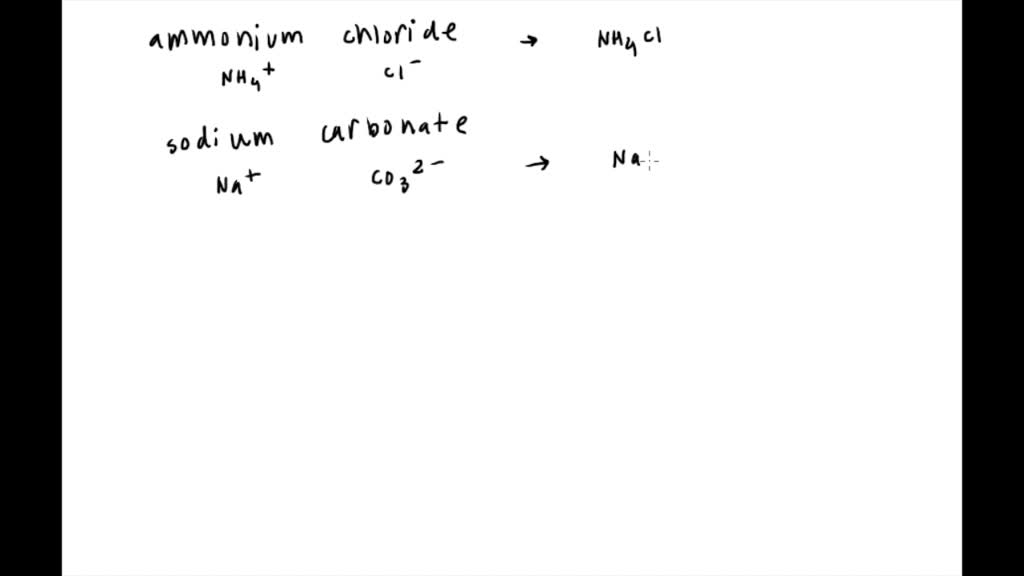 ammonium chloride → NH₄Cl
NH₄⁺ Cl⁻
sodium carbonate
Na⁺ CO₃²⁻ → Na